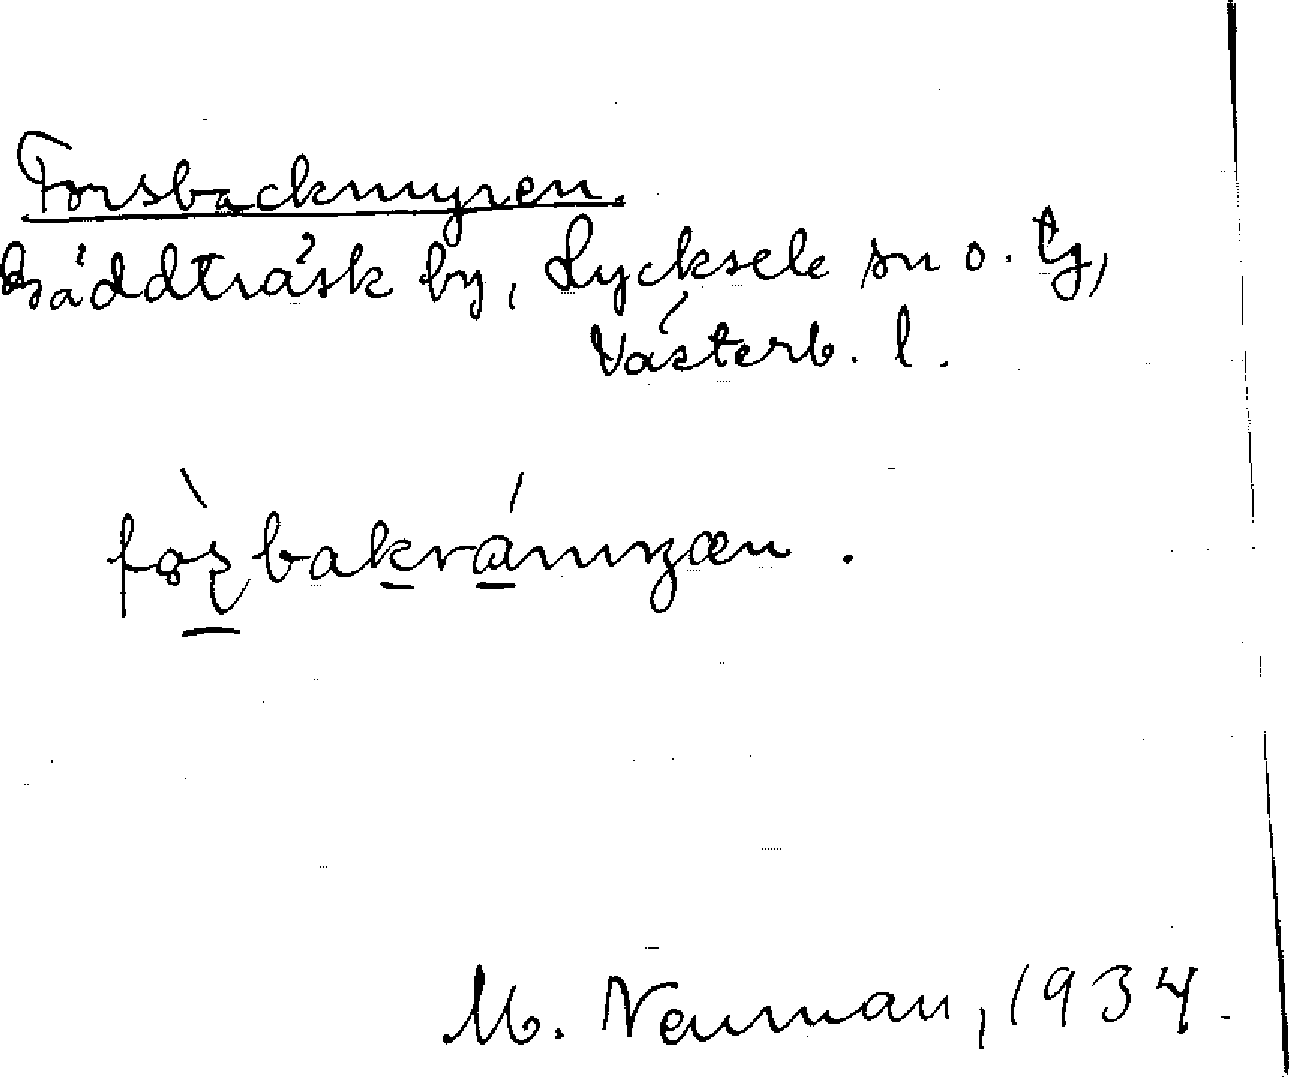 Forsbackmyren.
Bäddträsk by, Lycksele sn o. tg,
Västerb. l.
M. Neuman, 1934.